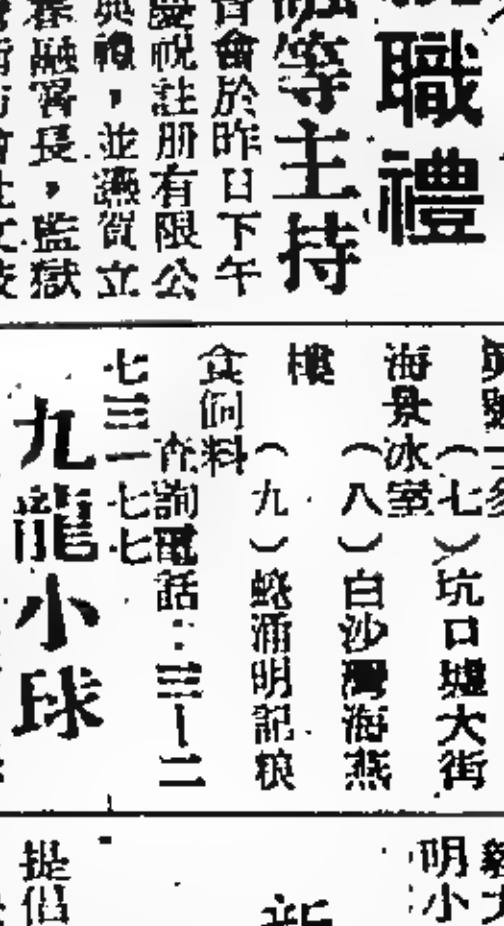 職禮
等主持
會於昨日下午
慶祝註册有限公
典禮，並讌賀立
融署長，監獄
（七）坑口墟大街
海景冰室
（八）白沙灣海燕
樓
（九）蠔涌明記粮
食飼料
查詢電話：三—二
七三一七七
九龍小球
明小
新
提倡